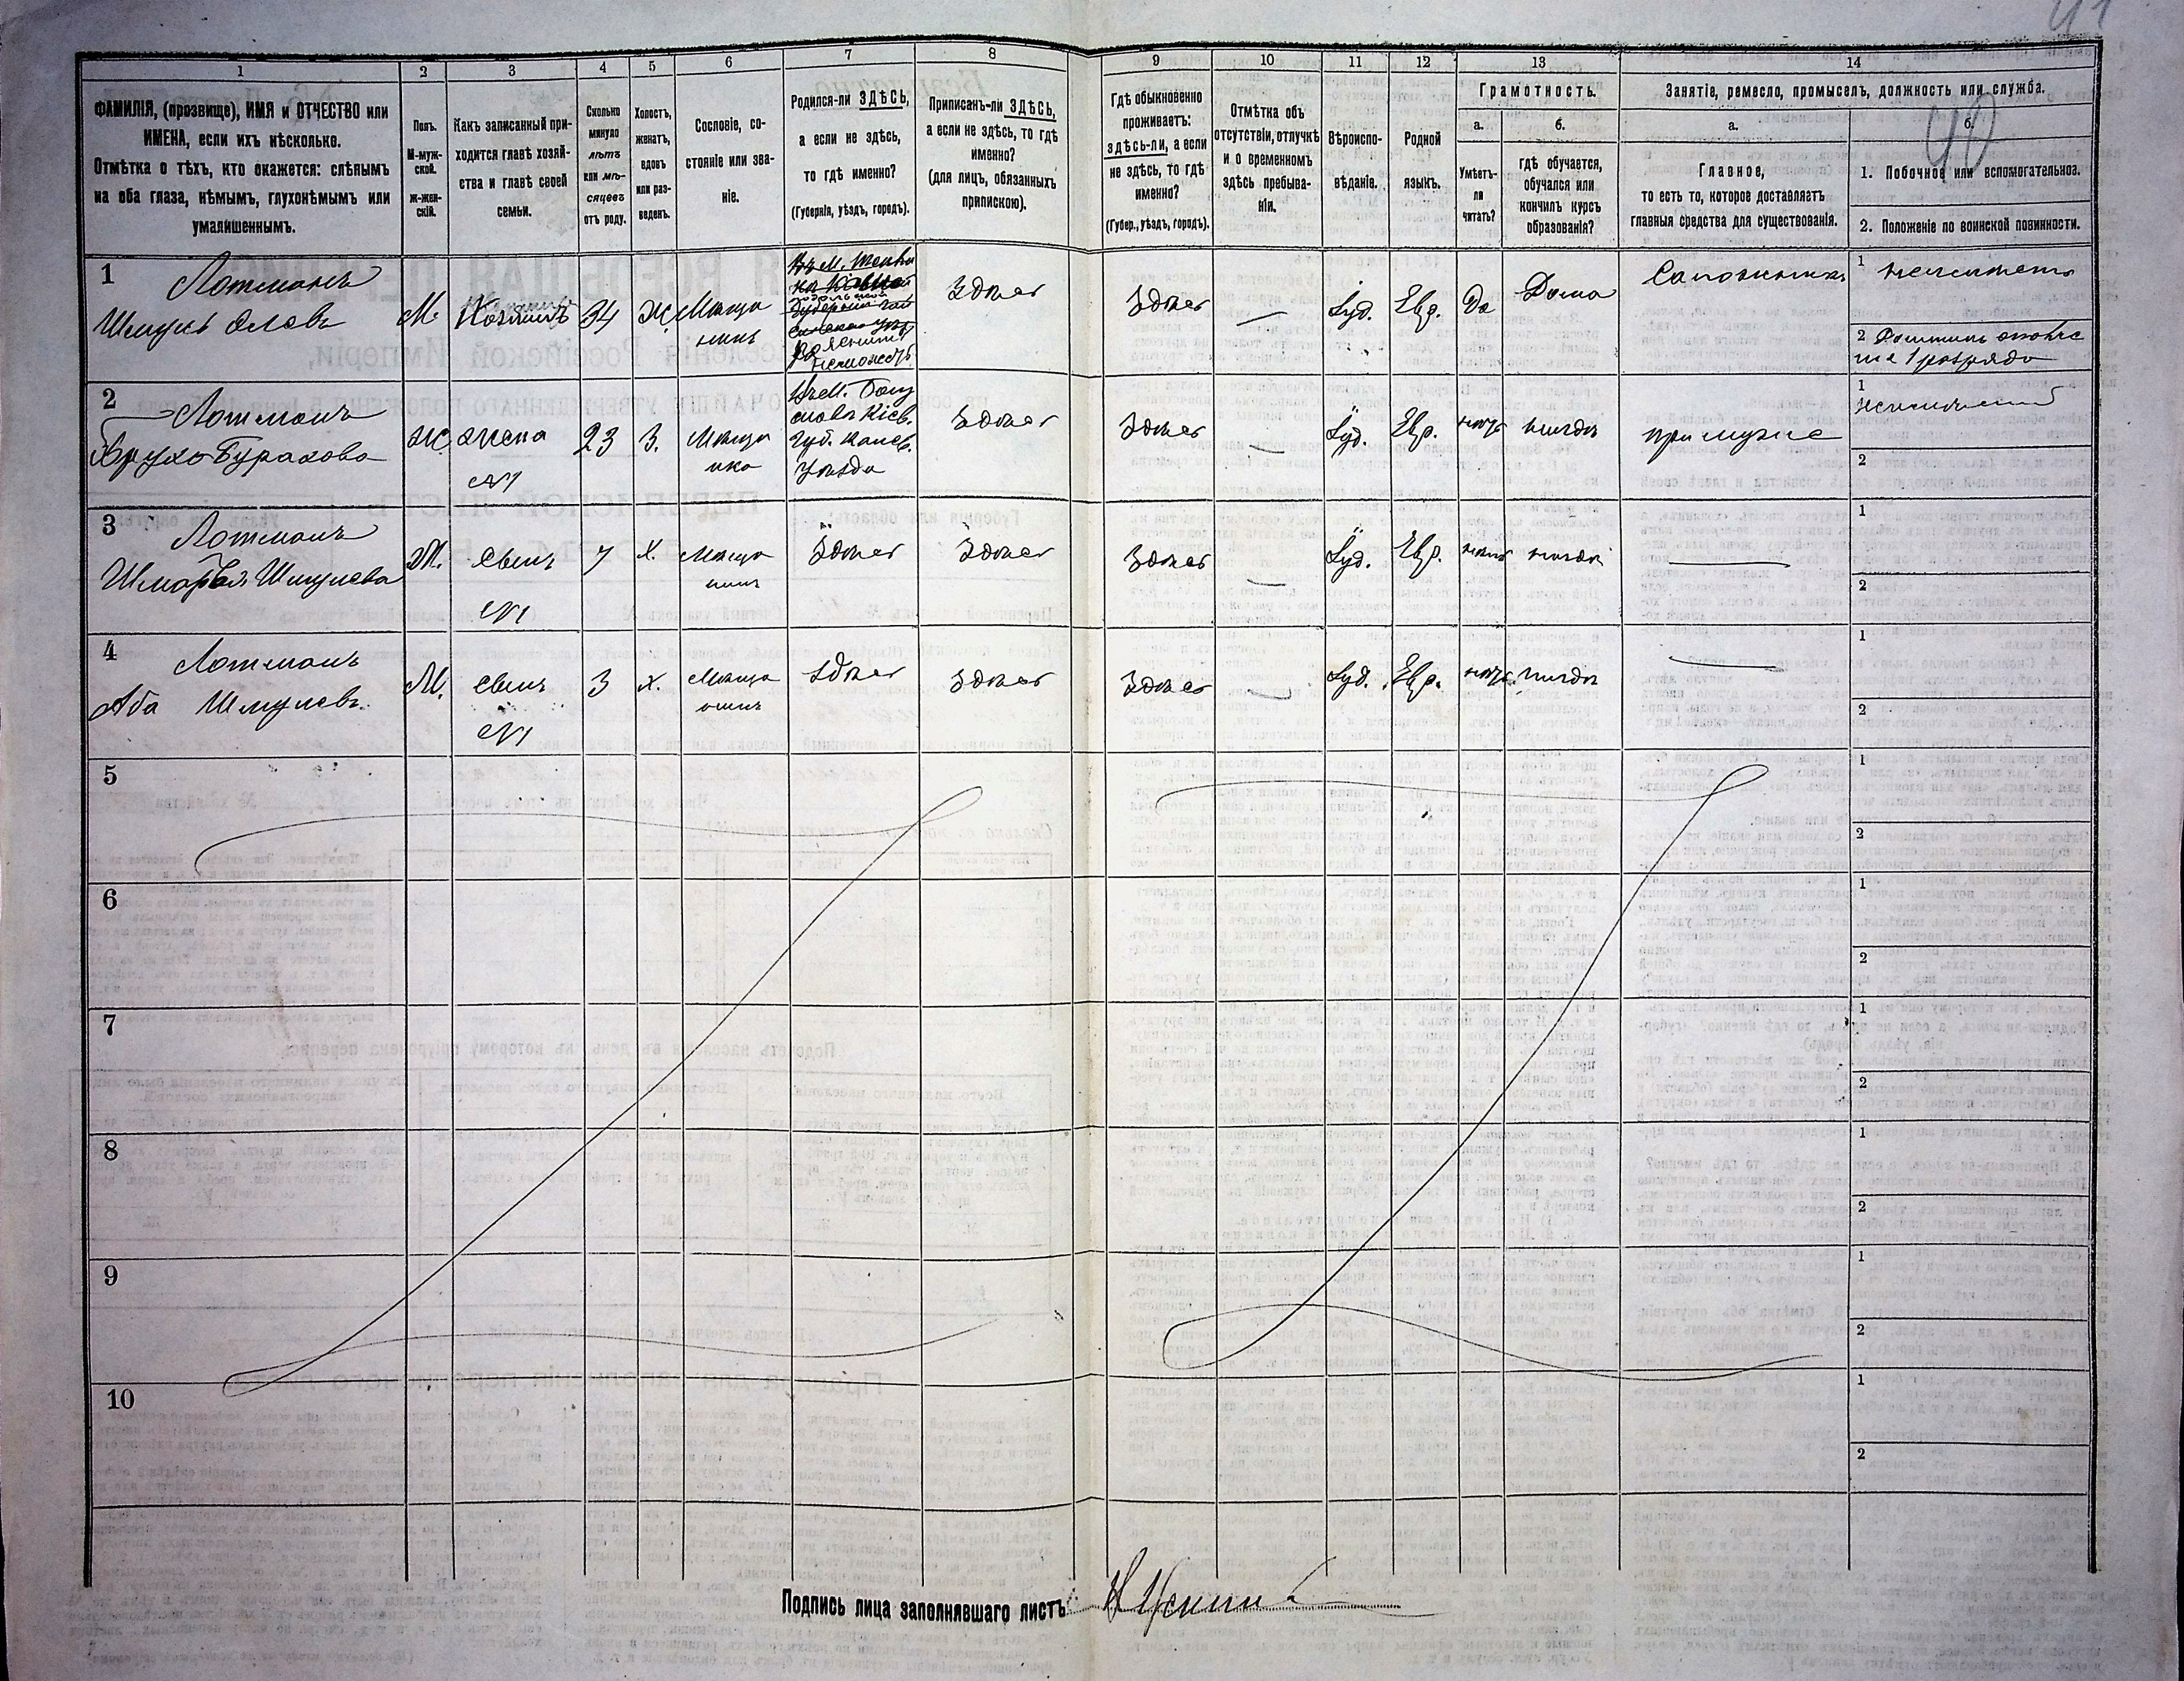 41
1
2
3
4
5
6
7
8
9
10
11
12
13
14
ФАМИЛІЯ, (прозвище), ИМЯ и ОТЧЕСТВО или
ИМЕНА, если ихъ нѣсколько.
Отмѣтка о тѣхъ, кто окажется: слѣпымъ
на оба глаза, нѣмымъ, глухонѣмымъ или
умалишеннымъ.
Полъ.
М-муж-
ской.
ж-жен-
скій.
Какъ записанный при-
ходится главѣ хозяй-
ства и главѣ своей
семьи.
Сколько
минуло
лѣтъ
или мѣ-
сяцевъ
отъ роду.
Холостъ,
женатъ,
вдовъ
или раз-
веденъ.
Сословіе, со-
стояніе или зва-
ніе.
Родился-ли ЗДѢСЬ,
а если не здѣсь,
то гдѣ именно?
(Губернія, уѣздъ, городъ).
Приписанъ-ли ЗДѢСЬ,
а если не здѣсь, то гдѣ
именно?
(для лицъ, обязанныхъ
припискою).
Гдѣ обыкновенно
проживаетъ:
здѣсь-ли, а если
не здѣсь, то гдѣ
именно?
(Губер., уѣздъ, городъ).
Отмѣтка объ
отсутствіи, отлучкѣ
и о временномъ
здѣсь пребыва-
ніи.
Вѣроиспо-
вѣданіе.
Родной
языкъ.
Грамотность.
а.
Умѣетъ-
ли
читать?
б.
гдѣ обучается,
обучался или
кончилъ курсъ
образованія?
Занятіе, ремесло, промыселъ, должность или служба.
а.
Главное,
то есть то, которое доставляетъ
главныя средства для существованія.
б.
40
1. Побочное или вспомогательное.
2. Положеніе по воинской повинности.
1
Лотманъ
Шмуль
М.
Хозяинъ
34
Ж.
Мѣща
нинъ
Здѣсь
Здѣсь
—
Іуд.
Евр.
Да
Дома
Сапожникъ
1
2
1 разряда
2
Лотманъ
Бурахова
Ж.
жена
№1
23
З.
Мѣща
нка
Въ М. Богу
славъ Кіев.
Губ. Канев.
Уѣзда
Здѣсь
Здѣсь
—
Іуд.
Евр.
нѣтъ
нигдѣ
при мужѣ
1
2
3
Лотманъ
Шмулевъ
М.
сынъ
№1
7
Х.
Мѣща
нинъ
Здѣсь
Здѣсь
Здѣсь
—
Іуд.
Евр.
нѣтъ
нигдѣ
—
1
2
4
Лотманъ
Аба Шмулевъ.
М.
сынъ
№1
3
Х.
Мѣща
нинъ
Здѣсь
Здѣсь
Здѣсь
—
Іуд.
Евр.
нѣтъ
нигдѣ
—
1
2
5
1
2
6
1
2
7
1
2
8
1
2
9
1
2
10
1
2
Подпись лица заполнявшаго листъ